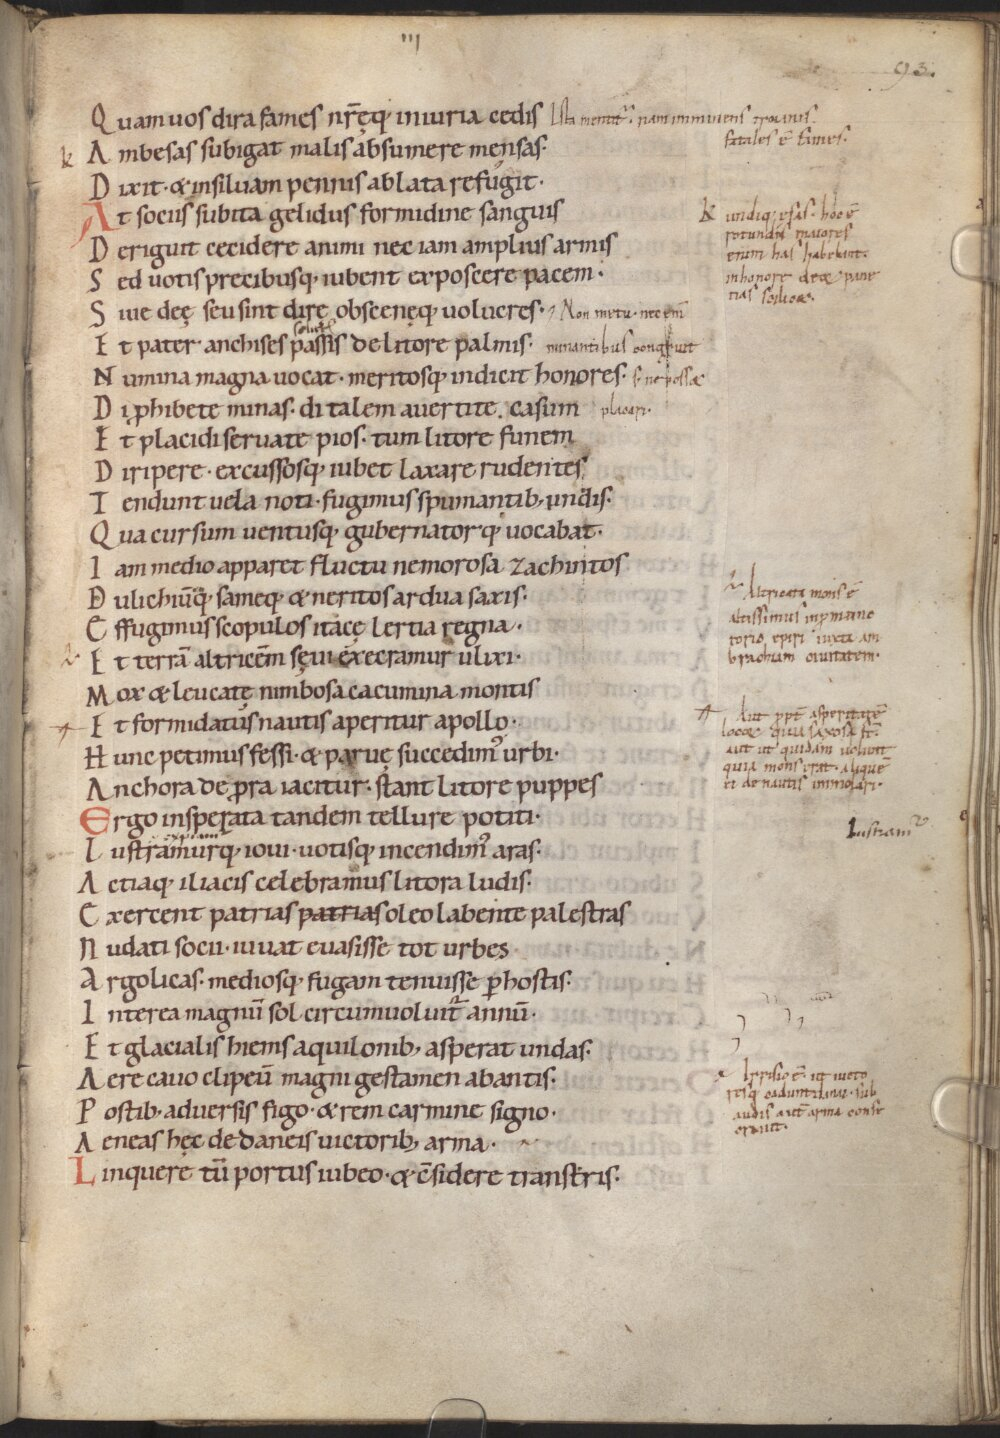 III
93.
Quam uos dira fames nr̄ęq; iniuria cedis
Ambesas subigat malis absumere mensas·
Dixit· & insiluam pennis ablata refugit·
At sociis subita gelidus formidine sanguis
Deriguit cecidere animi nec iam amplius armis
Sed uotis precibusq; iubent exposcere pacem·
Siue deę seu sint dirę obscenęq; uolucres· Non metu·
Et pater anchises passis de litore palmis·
Numina magna uocat· meritosq; indicit honores·
Di ꝓhibete minas· di talem auertite casum placari·
Et placidi seruate pios· tum litore funem
Diripere· excussosq; iubet laxare rudentes
Tendunt uela noti· fugimus spumantib; undis·
Qua cursum uentusq; gubernatorq; uocabat·
Iam medio apparet fluctu nemorosa zachintos
Dulichiūq; sameq; & neritos ardua saxis·
Effugimus scopulos itacę lertia regna·
Et terrā altricēm sęui execramur ulixi·
Mox & leucatę nimbosa cacumina montis
Et formidatus nautis aperitur apollo·
Hunc petimus fessi· & paruę succedim᷒ urbi·
Anchora de ꝓra iacitur· stant litore puppes
Ergo insperata tandem tellure potiti·
Lustramurq; ioui· uotisq; incendim᷒ aras·
Actiaq; iliacis celebramus litora ludis·
Exercent patrias patrias oleo labente palestras
Nudati socii· iuuat euasisse tot urbes
Argolicas· mediosq; fugam tenuisse ꝑ hostis·
Interea magnū sol circumuoluit᷑ annū·
Et glacialis hiems aquilonib; asperat undas·
Aere cauo clipeū magni gestamen abantis·
Postib; aduersis figo· & rem carmine signo·
Aeneas hęc de daneis uictorib; arma·
Linquere tū portus iubeo· & c̄sidere transtris·
fatales ē fames·
rotundas maiores
enim has habebant·
mons ē
altissimus in
torio epiri iuxta am
brachiam ciuitatem·
Aut ꝓpt̄ asperitatē
aut ut quidam uolunt
quia mons erat
de nautis immolari·